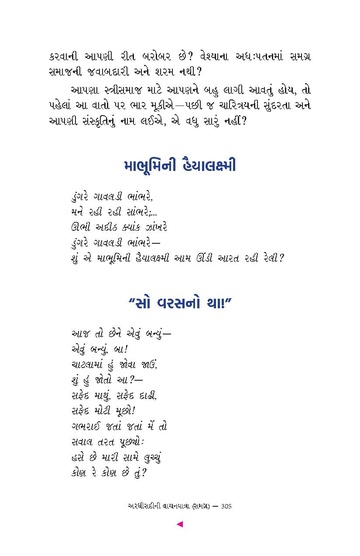 કરવાની આપણી રીત બરોબર છે? વેશ્યાના અધઃપતનમાં સમગ્ર
સમાજની જવાબદારી અને શરમ નથી?
આપણા સ્ત્રીસમાજ માટે આપણને બહુ લાગી આવતું હોય, તો
પહેલાં આ વાતો પર ભાર મૂકીએ—પછી જ ચારિત્ર્યની સુંદરતા અને
આપણી સંસ્કૃતિનું નામ લઈએ, એ વધુ સારું નહીં?
માભૂમિની હૈયાલક્ષ્મી
ડુંગરે ગાવલડી ભાંભરે,
મને રહી રહી સાંભરે;...
ઊભી અદીઠ ક્યાંક ઝાંખરે
ડુંગરે ગાવલડી ભાંભરે—
શું એ માભૂમિની હૈયાલક્ષ્મી આમ ઊંડી આરત રહી રેલી?
“સો વરસનો થા!”
આજ તો છેને એવું બન્યું—
એવું બન્યું, બા!
ચાટલામાં હું જોવા જાઉં,
શું હું જોતો આ?—
સફેદ માથું, સફેદ દાઢી,
સફેદ મોટી મૂછો!
ગભરાઈ જતાં જતાં મેં તો
સવાલ તરત પૂછ્યોઃ
હસે છે મારી સામે લુચ્ચું
કોણ રે કોણ છે તું?
અરધીસદીની વાચનયાત્રા (સમગ્ર) — 305